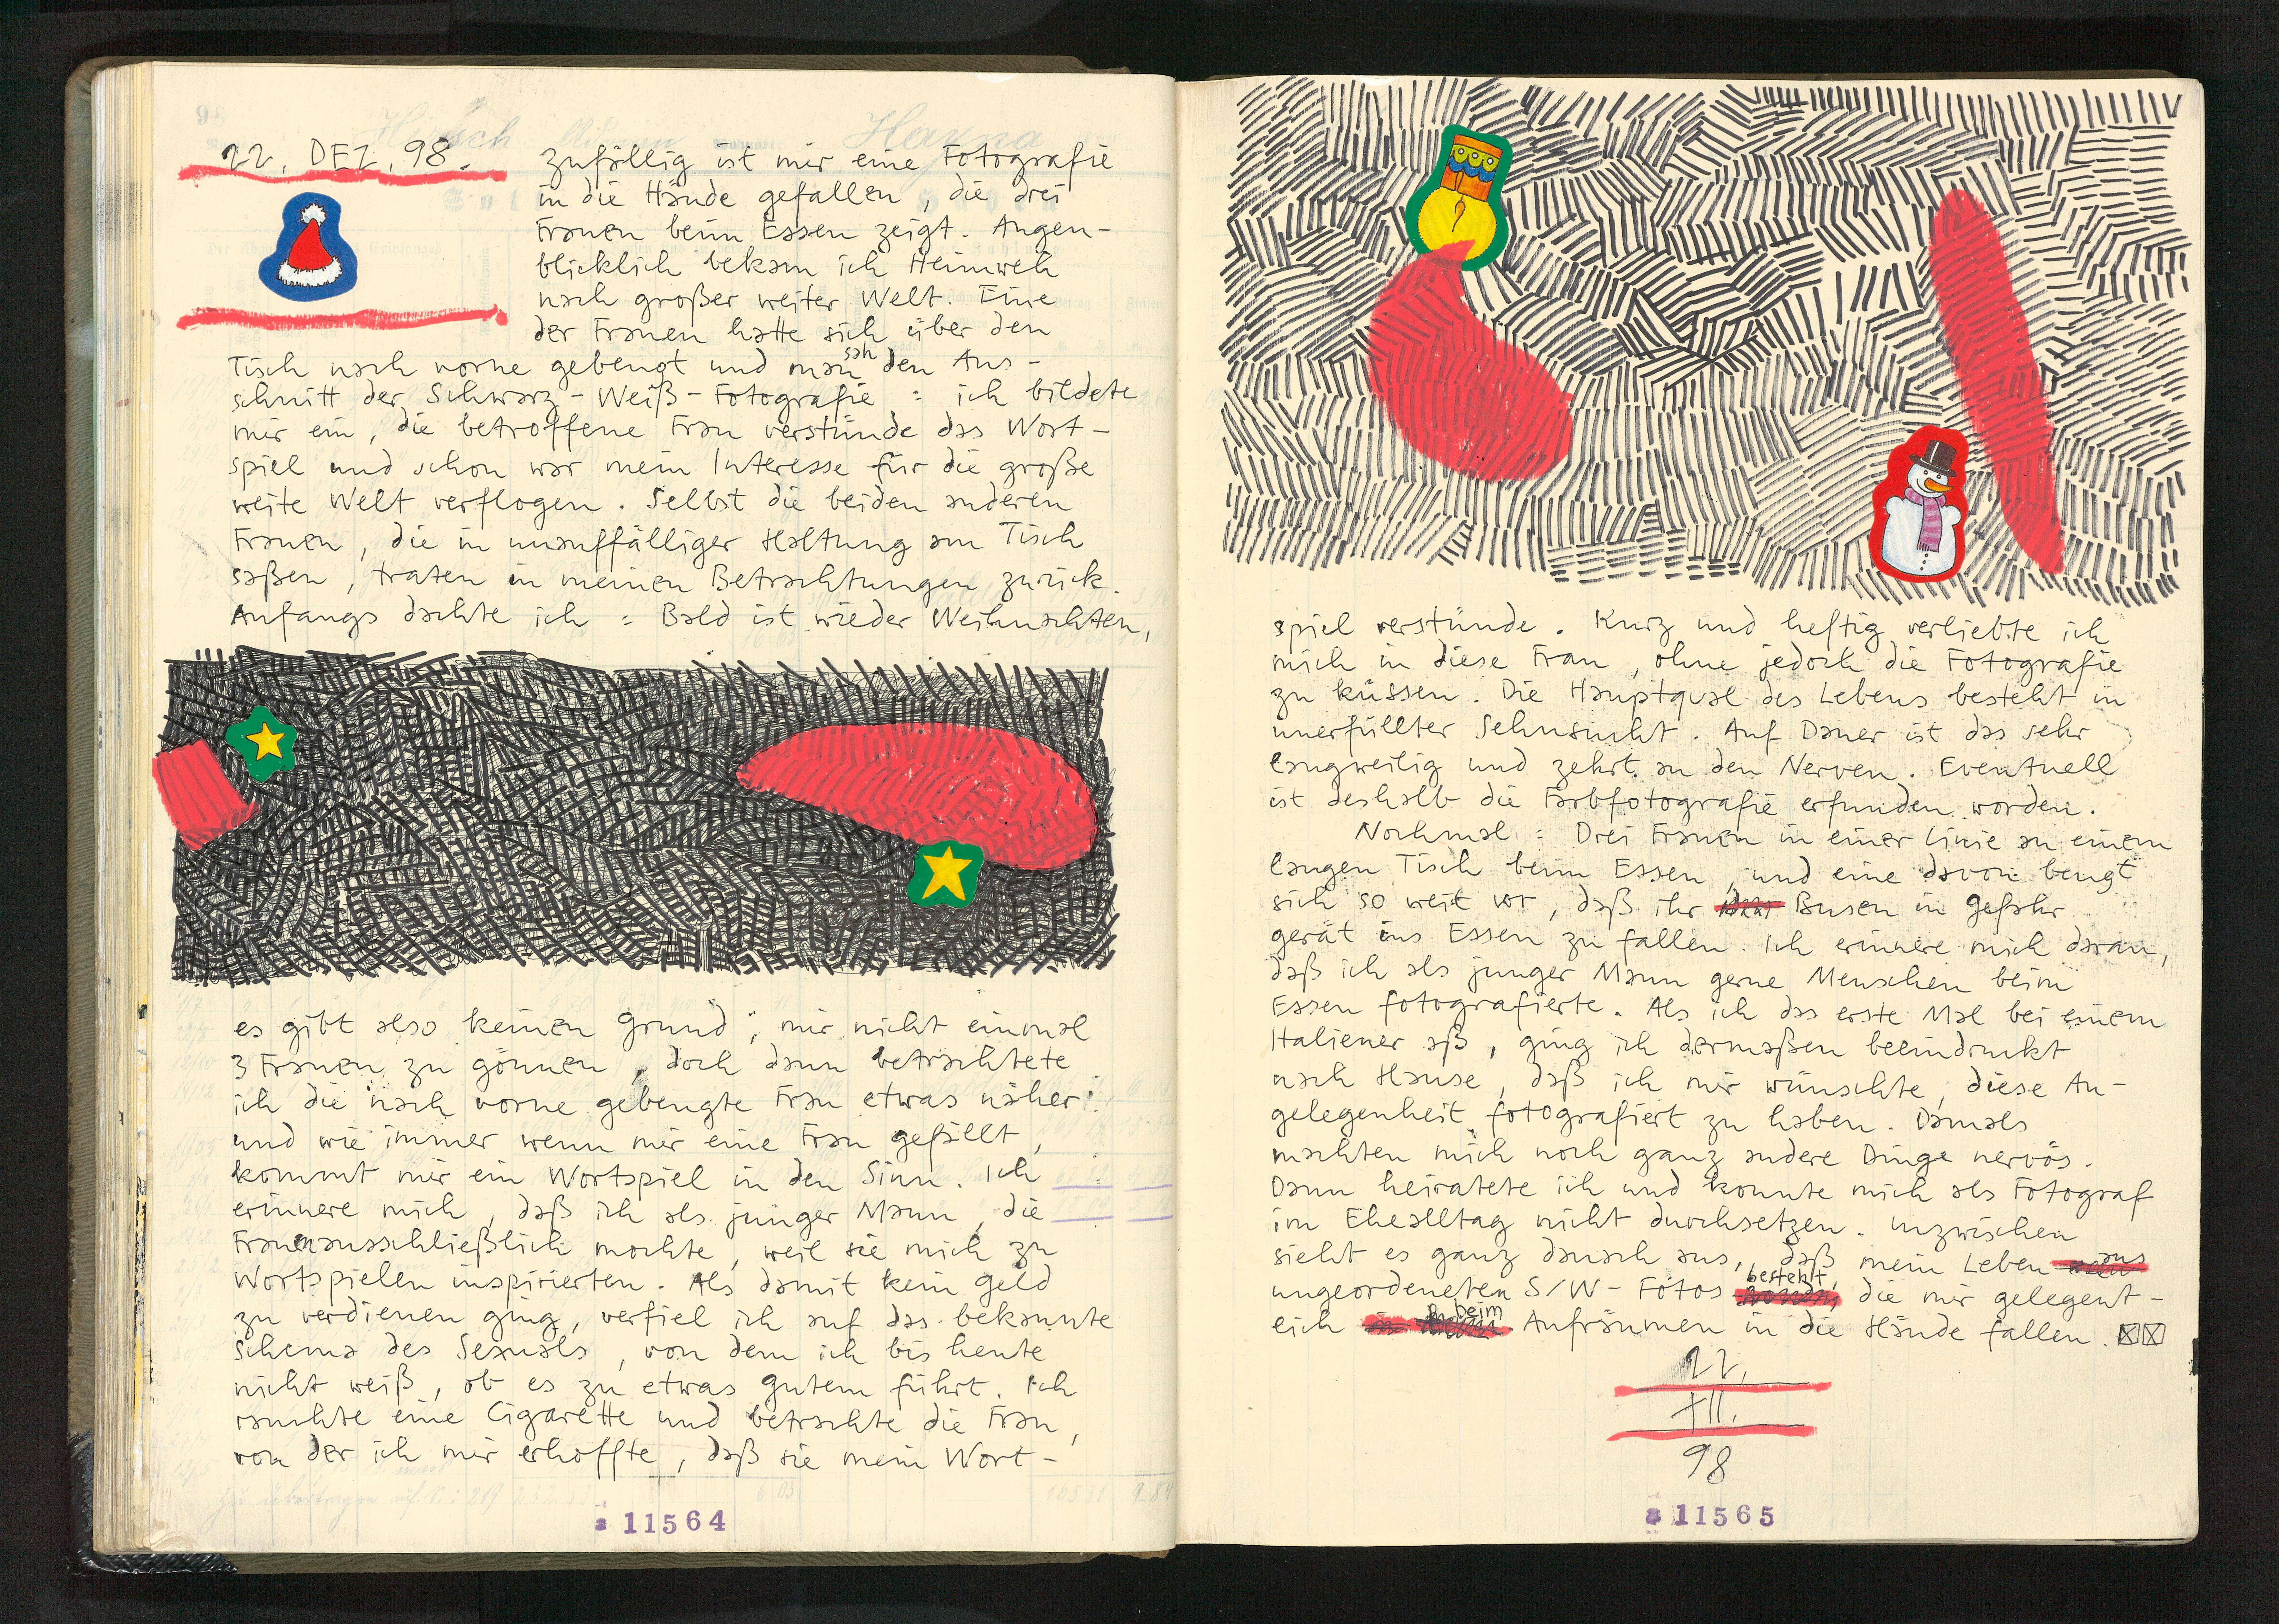 22. DEZ. 98.
zufällig ist mir eine Fotografie
in die Hände gefallen, die drei
Frauen beim Essen zeigt. Augen-
blicklich bekam ich Heimweh
nach großer weiter Welt. Eine
der Frauen hatte sich über den
Tisch nach vorne gebeugt und man sah den Aus-
schnitt der Schwarz-Weiß-Fotografie: ich bildete
mir ein, die betroffene Frau verstünde das Wort-
spiel und schon war mein Interesse für die große
weite Welt verflogen. Selbst die beiden anderen
Frauen, die in unauffälliger Haltung am Tisch
saßen, traten in meinen Betrachtungen zurück.
Anfangs dachte ich: Bald ist wieder Weihnachten,
es gibt also keinen Grund, mir nicht einmal
3 Frauen zu gönnen, doch dann betrachtete
ich die nach vorne gebeugte Frau etwas näher
und wie immer wenn mir eine Frau gefällt,
kommt mir ein Wortspiel in den Sinn. Ich
erinnere mich, daß ich als junger Mann, die
Frauen ausschließlich mochte, weil sie mich zu
Wortspielen inspirierten. Als damit kein Geld
zu verdienen ging, verfiel ich auf das bekannte
Schema des Sexuals, von dem ich bis heute
nicht weiß, ob es zu etwas gutem führt. Ich
rauchte eine Cigarette und betrachte die Frau,
von der ich mir erhoffte, daß sie mein Wort-
11564
spiel verstünde. Kurz und heftig verliebte ich
mich in diese Frau, ohne jedoch die Fotografie
zu küssen. Die Hauptqual des Lebens besteht in
unerfüllter Sehnsucht. Auf Dauer ist das sehr
langweilig und zehrt an den Nerven. Eventuell
ist deshalb die Farbfotografie erfunden worden.
Nochmal: Drei Frauen in einer Linie an einem
langen Tisch beim Essen, und eine davon beugt
sich so weit vor, daß ihr Busen in Gefahr
gerät ins Essen zu fallen. Ich erinnere mich daran,
daß ich als junger Mann gerne Menschen beim
Essen fotografierte. Als ich das erste Mal bei einem
Italiener aß, ging ich dermaßen beeindruckt
nach Hause, daß ich mir wünschte, diese An-
gelegenheit fotografiert zu haben. Damals
machten mich noch ganz andere Dinge nervös.
Dann heiratete ich und konnte mich als Fotograf
im Ehealltag nicht durchsetzen. Inzwischen
sieht es ganz danach aus, daß mein Leben aus
ungeordeneten S/W-Fotos besteht, die mir gelegent-
lich beim Aufräumen in die Hände fallen.
22.
XII.
98
11565